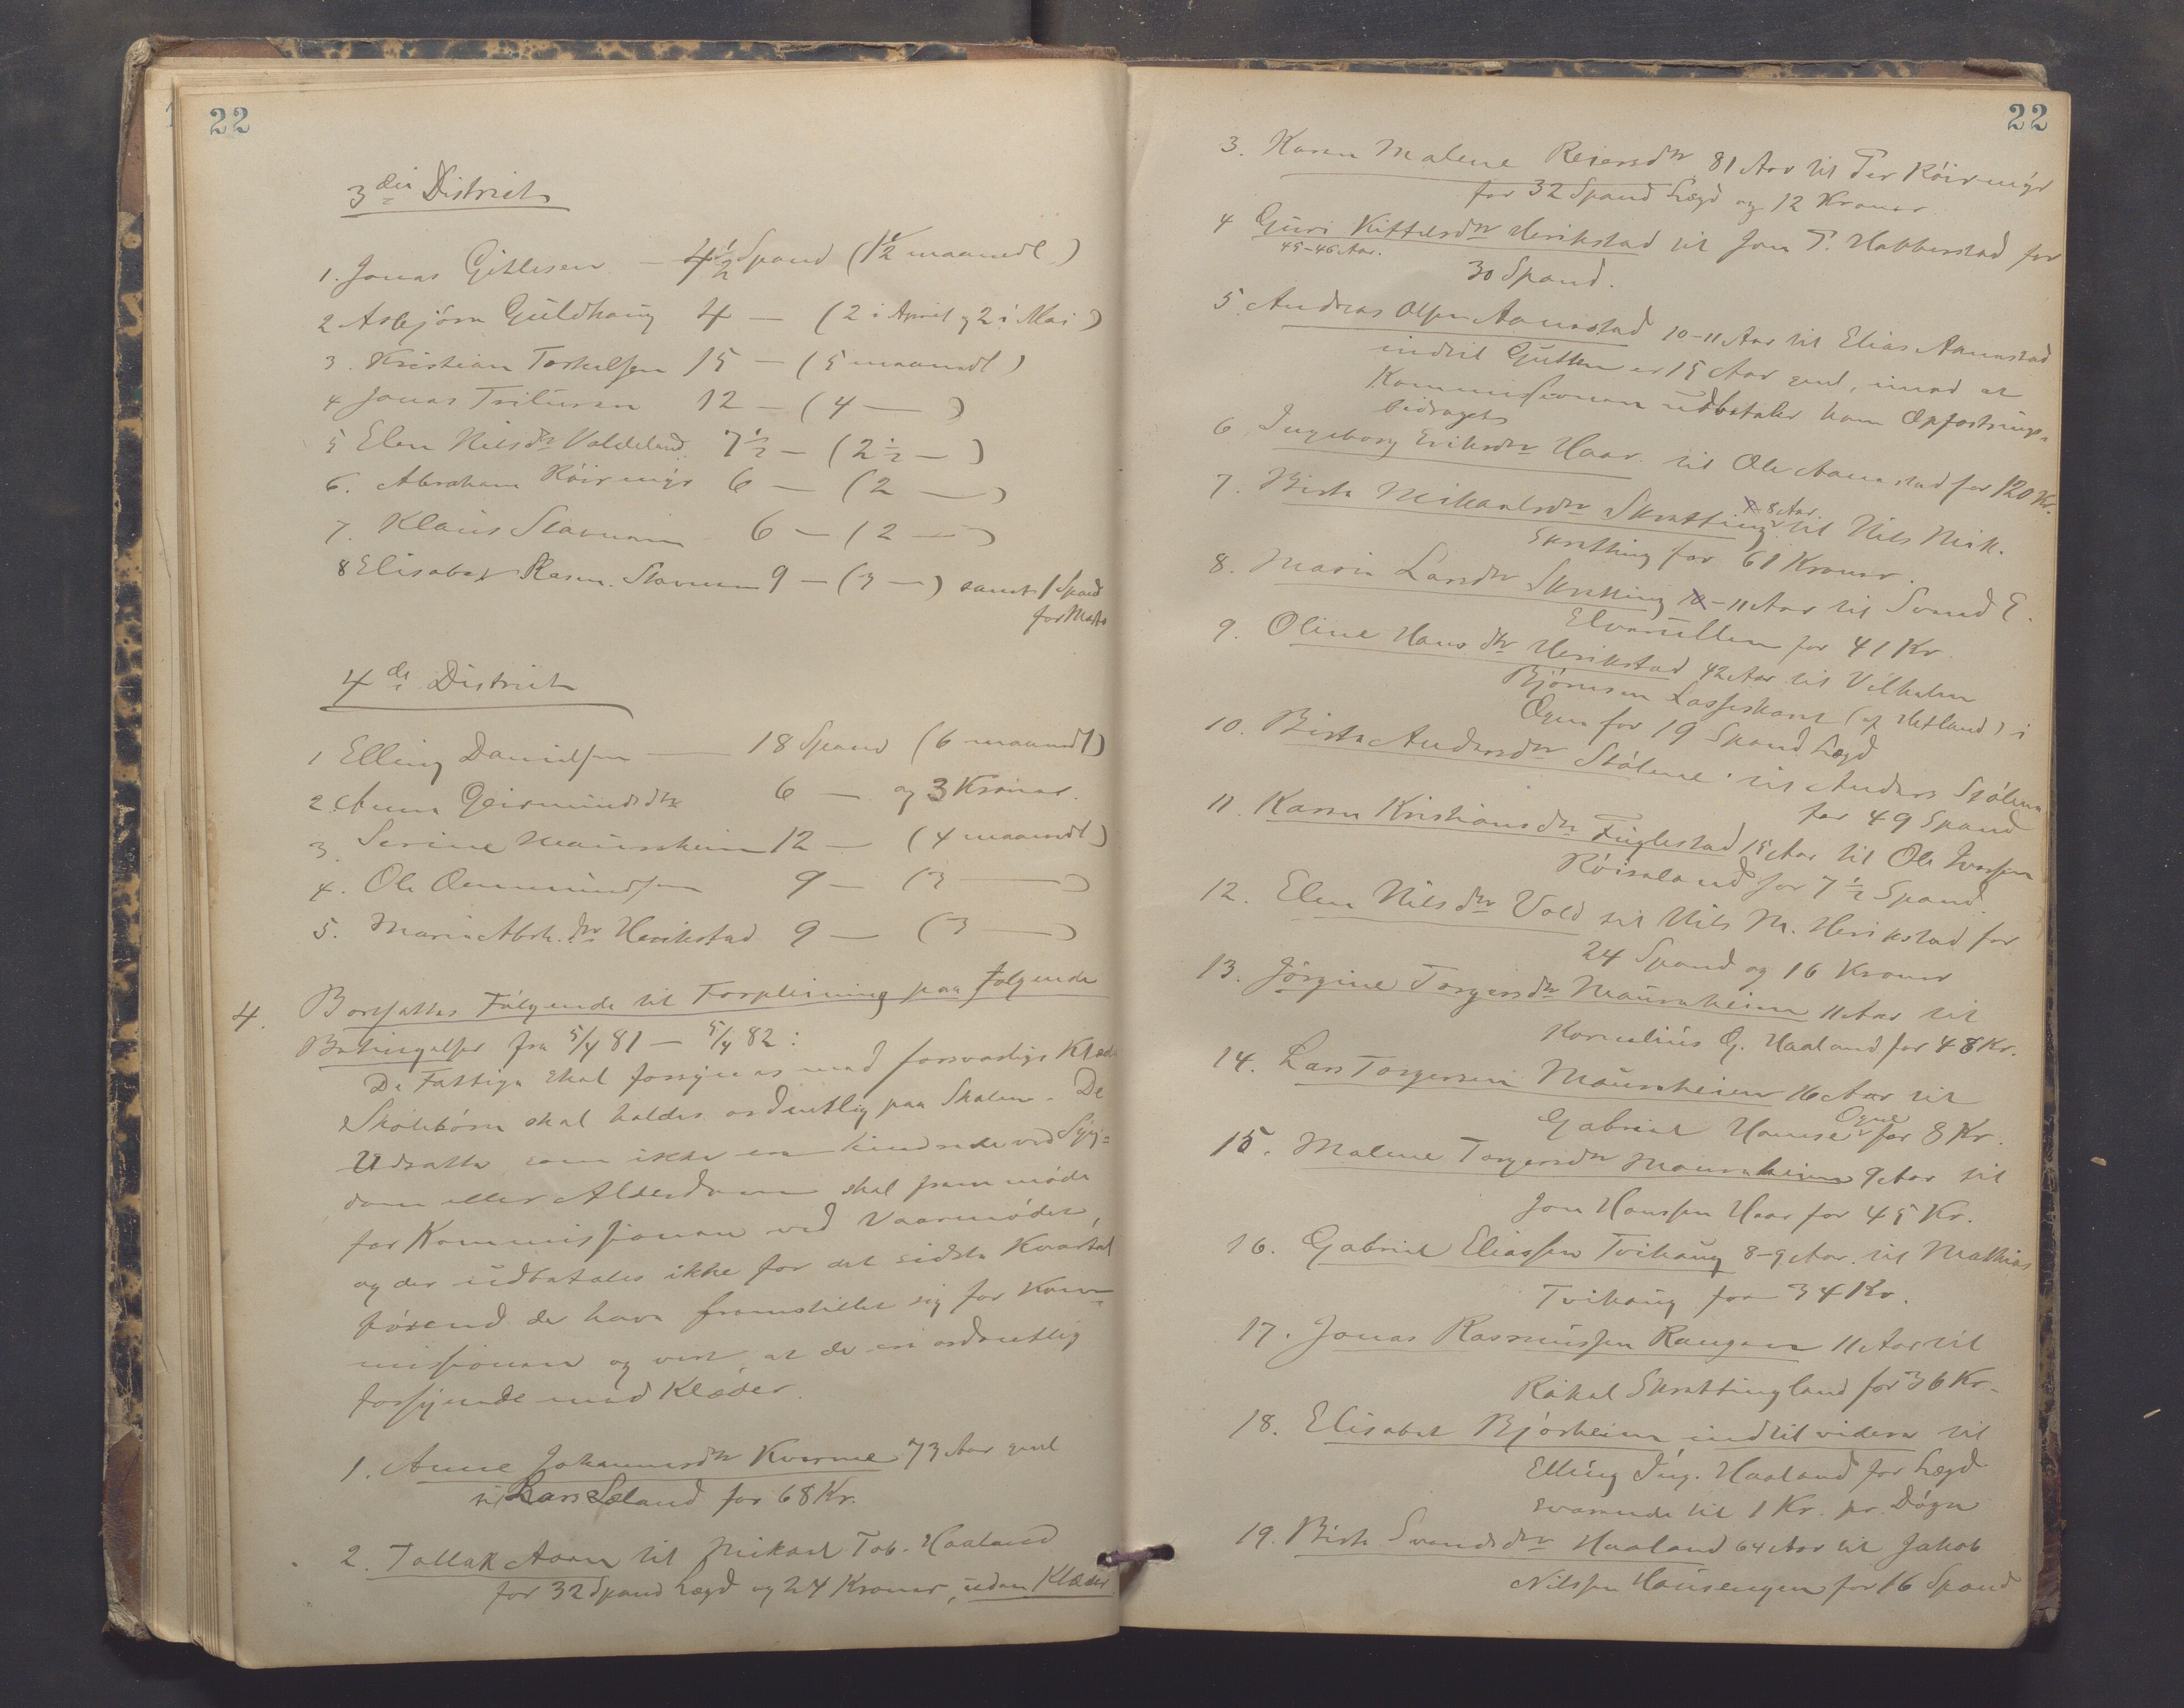 22
3die District
1. Jonas Gitlesen — 4½ Spand (1½ maanedl)
2 Asbjörn Guldhaug 4 — (2 i April og 2 i Mai)
3. Kristian Torkelsen 15 — (5 maanedl)
4 Jonas 12 — (4 — )
5 Elen Nilsdtr Valdeland 7½ — (2½ — )
6. Abraham Röirmyr 6 — (2 — )
7. Klaus Stavnem 6 — (2 — )
8 Elisabet Rasm. Stavnem 9 — (3 — ) samt 1 Spand
for Marts
4de District
1 Elling Danielsen — 18 Spand (6 maanedl)
2. Anna Geirmundsdtr 6 — og 3 Kroner.
3. Serine Maurnheim 12 — (4 maanedl)
4. Ole Oemmundsen 9 — (3 — )
5. Maria Abrh.dtr Herikstad 9 — (3 — )
4. Bortsattes Fölgende til Forpleining paa følgende
Betingelser fra 5/4 81 — 5/4 82:
De Fattige skal forsynes med forsvarlige Klæder
Skolebörn skal holdes ordentlig paa Skolen. De
Udsatte som ikke ere hindrede ved Syg-
dom eller Alderdom skal fremmöde
for Kommissionen ved Vaarmödet,
og der udbetales ikke for det sidste Kvartal
förend de have fremstillet sig for Kom-
missionen og vist, at de ere ordentlig
forsynede med Klæder.
1. Anne Johannesdtr Kvarme 73 Aar gml
til Lars Læland for 68 Kr.
2. Tollak Aarn til Mikael Tob. Haaland
for 32 Spand Lægd og 24 Kroner, uden Klæder
22
3. Karen Malene Reiersdtr 81 Aar til Per Röirmyr
for 32 Spand Lægd og 12 Kroner
4 Guri Kittelsdtr Herikstad til Jon P. Habberstad for
45-46 Aar.
30 Spand.
5. Andreas Olsen Aanestad 10-11 Aar til Elias Aanestad
indtil Gutten er 15 Aar gml, imod at
Kommissionen udbetaler ham Opfostrings-
bidraget
6 Ingeborg Eriksdtr Haar til Ole Aanestad for 120 Kr.
7. Birte Mikaelsdtr Skratting 8 Aar til Nils Mik.
Skratting for 61 Kroner.
8. Maria Larsdtr Skratting 10-11 Aar til Svend E.
for 41 Kr
9. Oline Hansdtr Herikstad 42 Aar til Vilhelm
Björnsen Lasseskaret (af Hetland) i
Ogna for 19 Spand Lægd
10. Birte Andersdtr Stölene til Anders Stölene
for 49 Spand
11. Karen Kristiansdtr Fuglestad 15 Aar til Ole Ivarsen
Röiseland for 7½ Spand.
12. Elen Nilsdtr Vold til Nils M. Herikstad for
24 Spand og 16 Kroner
13. Jörgine Torgersdtr Maurnheim 11 Aar til
Kornelius G. Haaland for 48 Kr.
14. Lars Torgersen Maurnheim 16 Aar til
Gabriel Homse Ogne for 8 Kr.
15. Malene Torgersdtr Maurnheim 9 Aar til
Jon Hanssen Haar for 45 Kr.
16. Gabriel Eliassen Tvihaug 8-9 Aar til Mathias
Tvihaug for 34 Kr.
17. Jonas Rasmussen Raugen 11 Aar til
Rakel Skrettingland for 36 Kr.
18. Elisabet Bjårheim indtil videre til
Elling Ing. Haaland for Lægd
svarende til 1 Kr. pr. Dögn
19. Birte Svendsdtr Haaland 64 Aar til Jakob
Nilssen Hausengen for 16 Spand